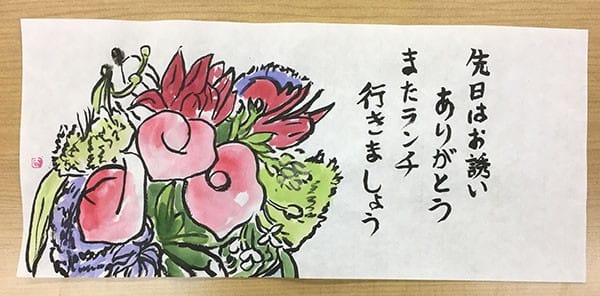 先日はお誘い
ありがとう
またランチ
行きましょう